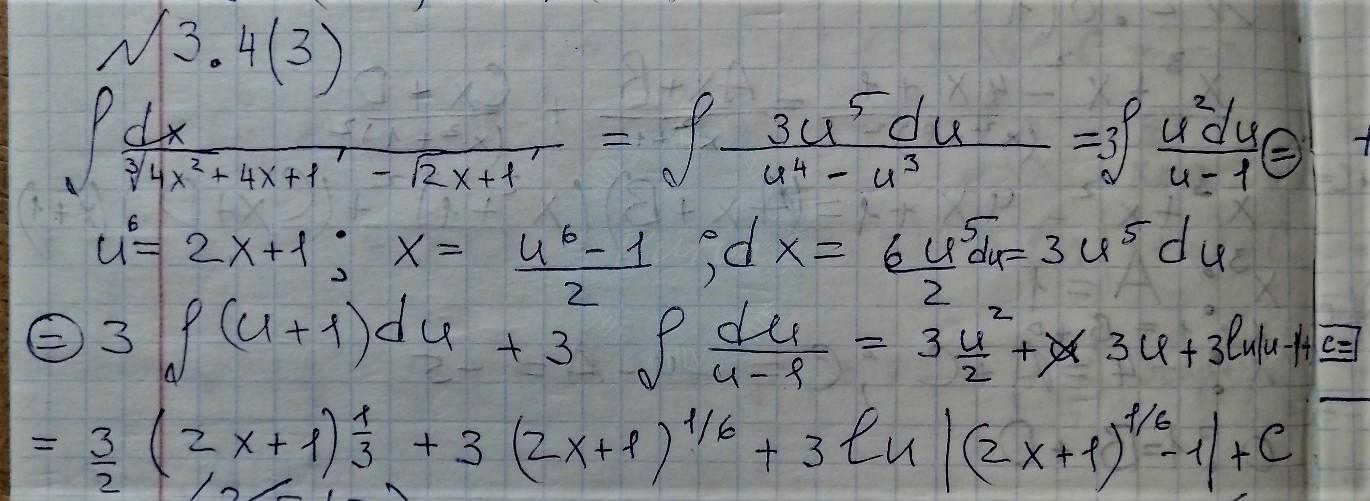 №3.4(3)
∫ dx / (∛(4x²+4x+1) - √(2x+1)) = ∫ 3u⁵du / (u⁴ - u³) = 3∫ u²du / (u-1) ⊜
u⁶ = 2x+1; x = (u⁶-1)/2; dx = 6u⁵/2 du = 3u⁵ du
⊜ 3 ∫(u+1)du + 3 ∫ du/(u-1) = 3 u²/2 + 3u + 3ln|u-1| + C =
= 3/2 (2x+1)^1/3 + 3 (2x+1)^1/6 + 3 ln |(2x+1)^1/6 - 1| + C